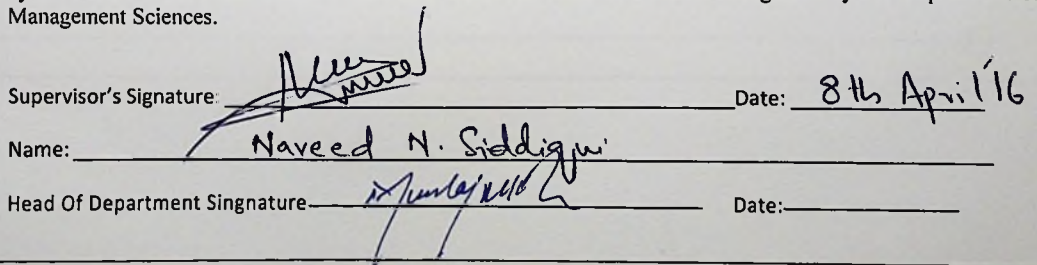 Management Sciences.
Supervisor's Signature: Date: 8th April '16
Name: Naveed N. Siddiqui
Head Of Department Singnature Date: